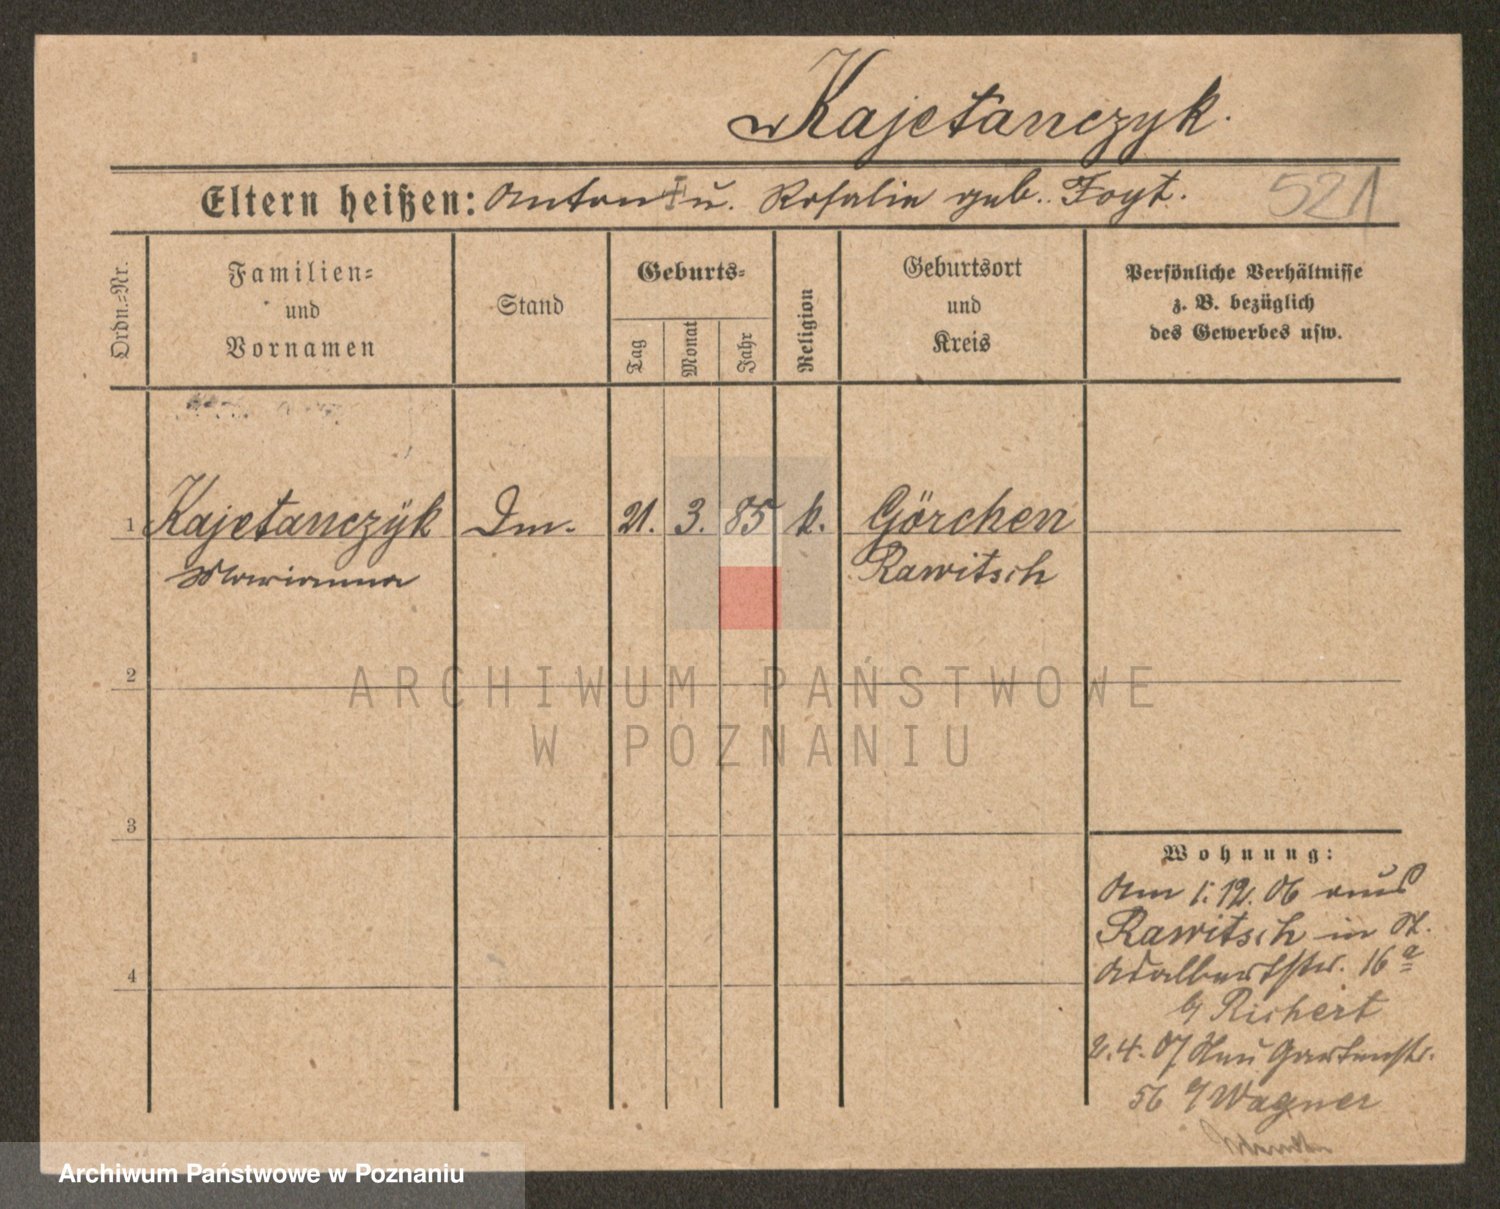 Kajetanczyk.
Eltern heißen: Anton † u. Rosalie geb. Foyt. 521
Ordn.-Nr.
Familien-
und
Vornamen
Stand
Geburts-
Tag
Monat
Jahr
Religion
Geburtsort
und
Kreis
Persönliche Verhältnisse
z. B. bezüglich
des Gewerbes usw.
1 Kajetanczÿk Dm. 21. 3. 85 k. Görchen
Marianna Rawitsch
2
3
4
Wohnung:
Am 1. 12. 06 aus
Rawitsch in St.
Adalbertstr. 16 a
b/ Richert
2. 4. 07 Neu Gartenstr.
56 b/ Wagner
ARCHIWUM PAŃSTWOWE
W POZNANIU
Archiwum Państwowe w Poznaniu